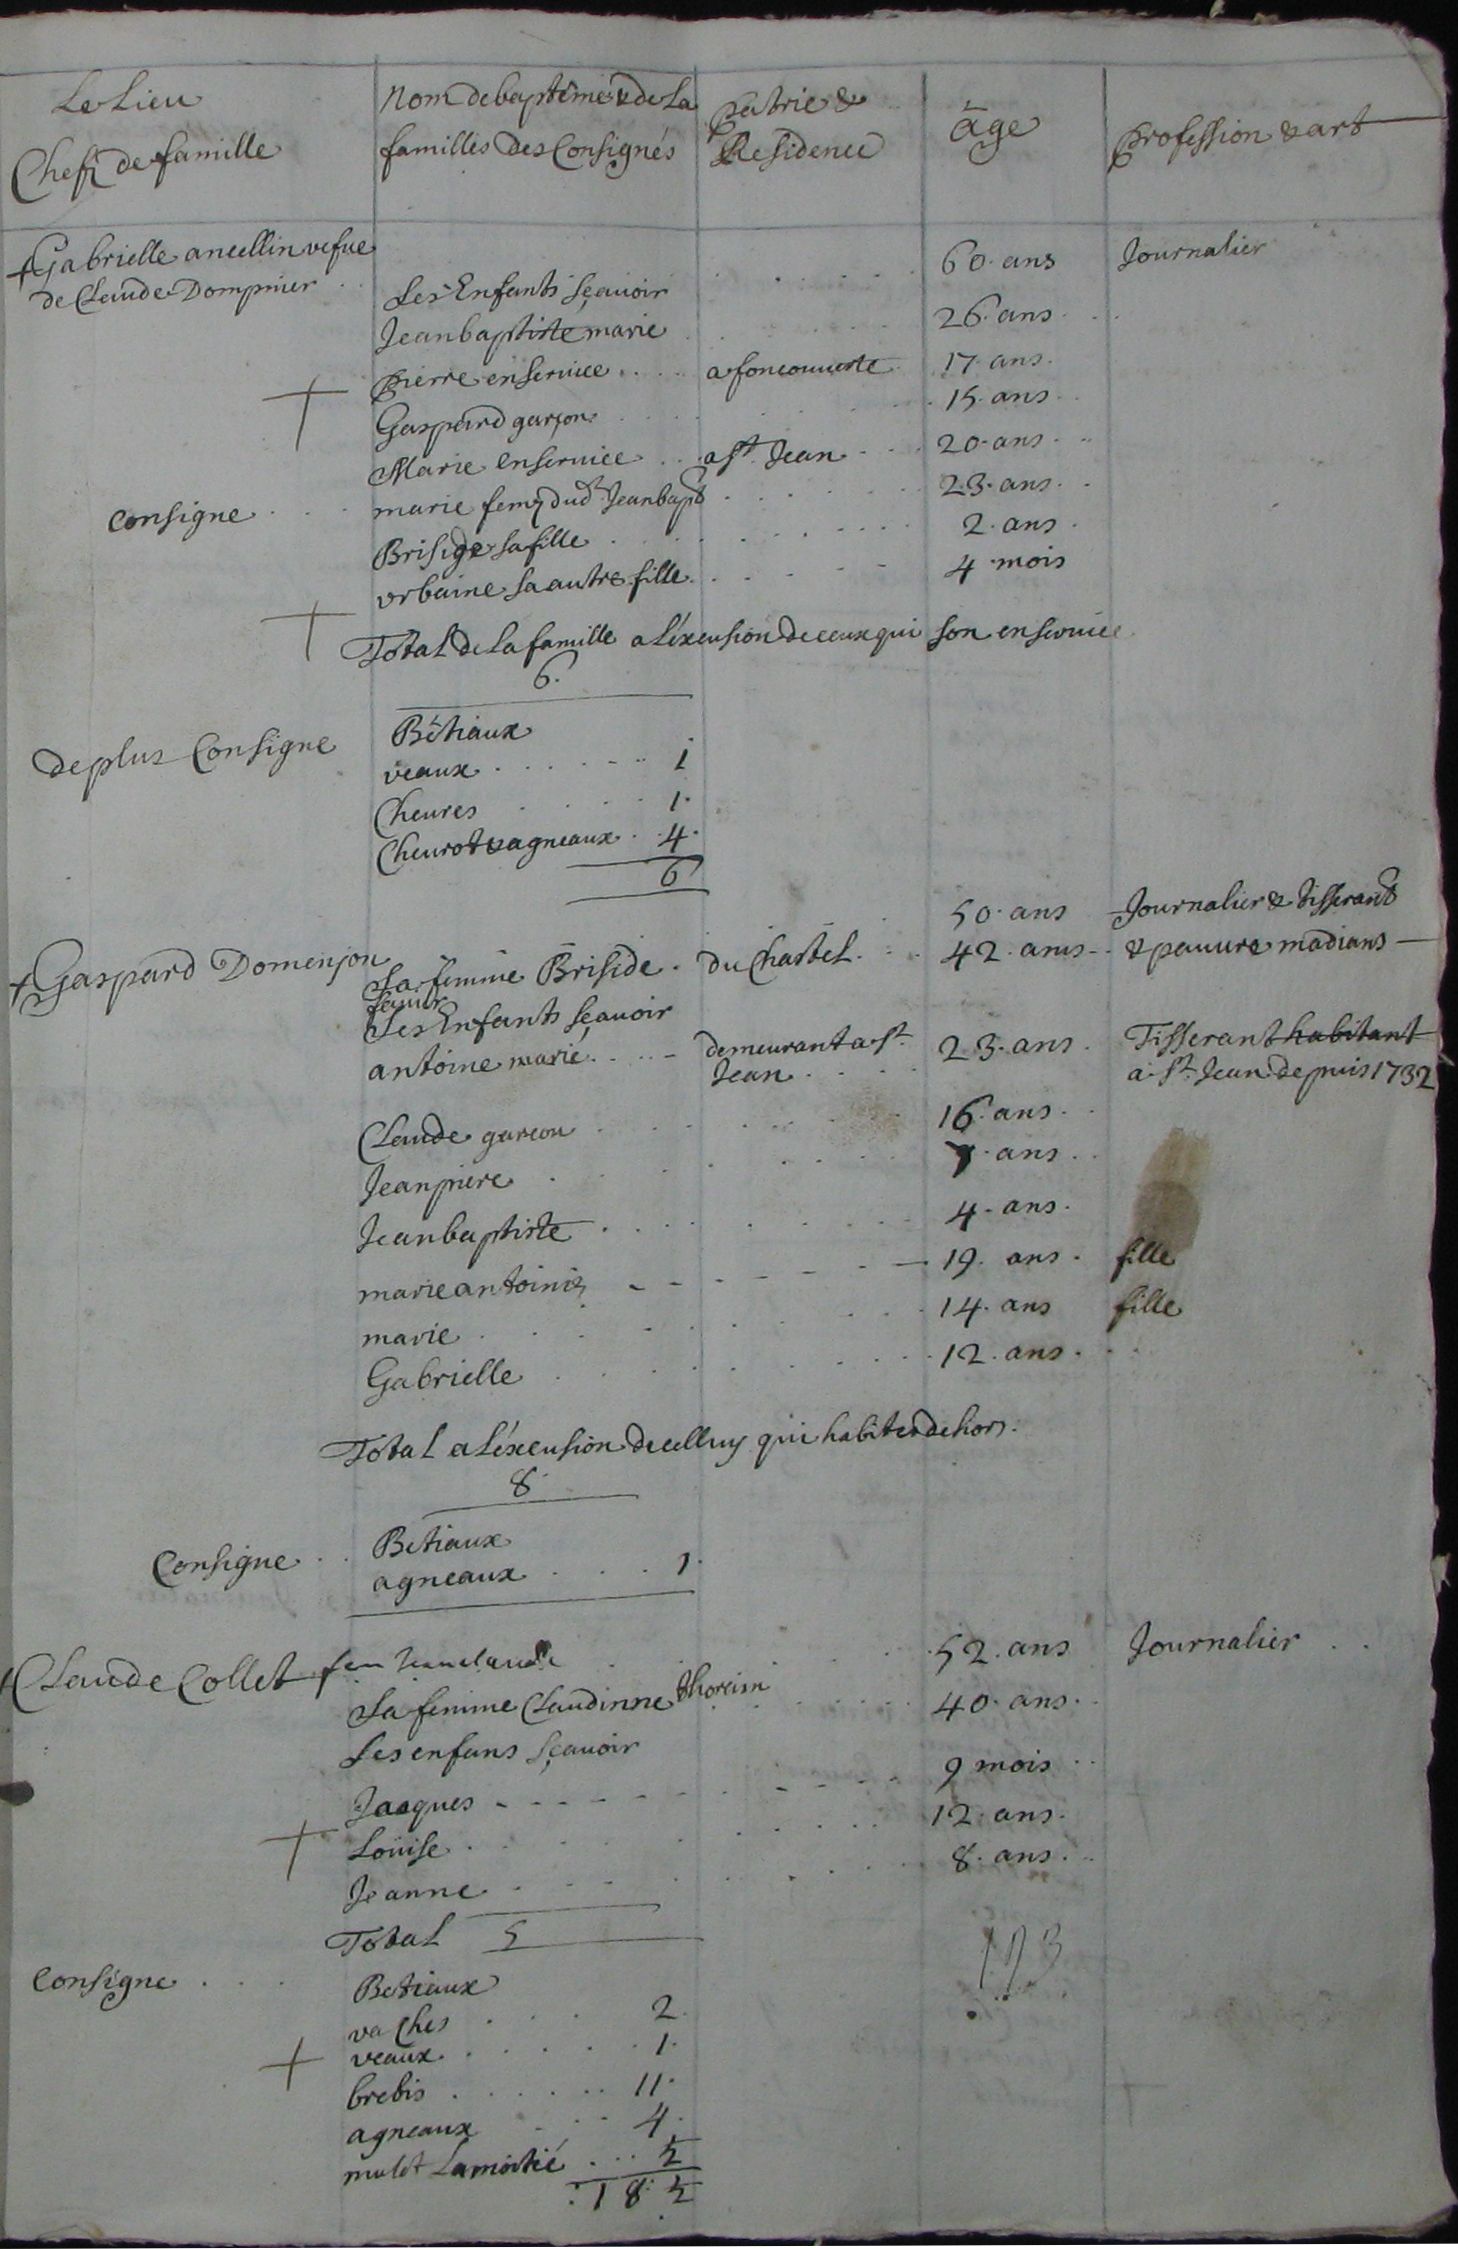 Le Lieu
Chefz de famille
Nom de baptême & de La
familles des Consignés
patrie &
Residence
âge
profession & art
+ Gabrielle ancellin vefue
de Claude Dompnier
60. ans Journalier
Les Enfants sçauoir
Jean baptiste marie 26. ans
pierre en seruice a foncouuerte 17. ans
Gaspard garçon 15. ans
Marie en seruice a St. Jean 20. ans
consigne marie feme dud. Jean bapt 23. ans
Briside sa fille 2. ans
vrbaine sa autre fille 4 mois
Total de La famille a L'éxcusion de ceux qui son en seruice
6.
de plus Consigne
Bêtiaux
veaux 1
Cheures 1.
Cheurot & agneaux 4.
6
+ Gaspard Domenjon 50. ans Journalier & tisserant
Sa femme Briside du Chastel 42. ans & pauure madians
Ses Enfants sçauoir
antoine marié demeurant a St. 23. ans Tisserant habitant
Jean a St. Jean depuis 1732
Claude garcon 16. ans
Jean piere 7. ans
Jean baptiste 4. ans
marie antoinie 19. ans fille
marie 14. ans fille
Gabrielle 12. ans
Total a L'éxcusion de celluy qui habite dehors.
8
Consigne Betiaux
agneaux 1.
+ Claude Collet feu Jean claude 52. ans Journalier
Sa femme Claudinne thorein 40. ans
Les enfans sçauoir
Jacques 9 mois
Loüise 12. ans
Jeanne 8. ans
Total 5
Consigne Betiaux
vaches 2.
veaux 1.
brebis 11.
agneaux 4.
mulet La moitié ½
18. ½